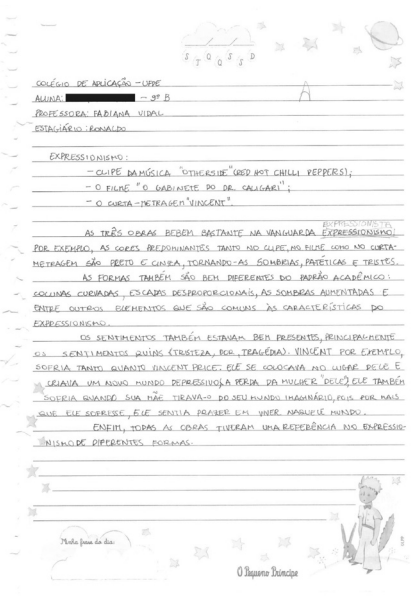 S T Q Q S S D
COLÉGIO DE APLICAÇÃO - UFPE
ALUNA: - 9º B
A
PROFESSORA: FABIANA VIDAL
ESTAGIÁRIO: RONALDO
EXPRESSIONISMO:
- CLIPE DA MÚSICA "OTHERSIDE" (RED HOT CHILLI PEPPERS);
- O FILME "O GABINETE DO DR. CALIGARI";
- O CURTA-METRAGEM "VINCENT".
EXPRESSIONISTA
AS TRÊS OBRAS BEBEM BASTANTE NA VANGUARDA EXPRESSIONISMO;
POR EXEMPLO, AS CORES PREDOMINANTES TANTO NO CLIPE, NO FILME COMO NO CURTA-
METRAGEM SÃO PRETO E CINZA, TORNANDO-AS SOMBRIAS, PATÉTICAS E TRISTES.
AS FORMAS TAMBÉM SÃO BEM DIFERENTES DO PADRÃO ACADÊMICO:
COLUNAS CURVADAS, ESCADAS DESPROPORCIONAIS, AS SOMBRAS AUMENTADAS E
ENTRE OUTROS ELEMENTOS QUE SÃO COMUNS ÀS CARACTERÍSTICAS DO
EXPRESSIONISMO.
OS SENTIMENTOS TAMBÉM ESTAVAM BEM PRESENTES, PRINCIPALMENTE
OS SENTIMENTOS RUINS (TRISTEZA, DOR, TRAGÉDIA). VINCENT POR EXEMPLO,
SOFRIA TANTO QUANTO VINCENT PRICE. ELE SE COLOCAVA NO LUGAR DELE E
CRIAVA UM NOVO MUNDO DEPRESSIVO (A PERDA DA MULHER "DELE"), ELE TAMBÉM
SOFRIA QUANDO SUA MÃE TIRAVA-O DO SEU MUNDO IMAGINÁRIO, POIS POR MAIS
QUE ELE SOFRESSE, ELE SENTIA PRAZER EM VIVER NAQUELE MUNDO.
ENFIM, TODAS AS OBRAS TIVERAM UMA REFERÊNCIA NO EXPRESSIO-
NISMO DE DIFERENTES FORMAS.
Minha frase do dia:
O Pequeno Príncipe